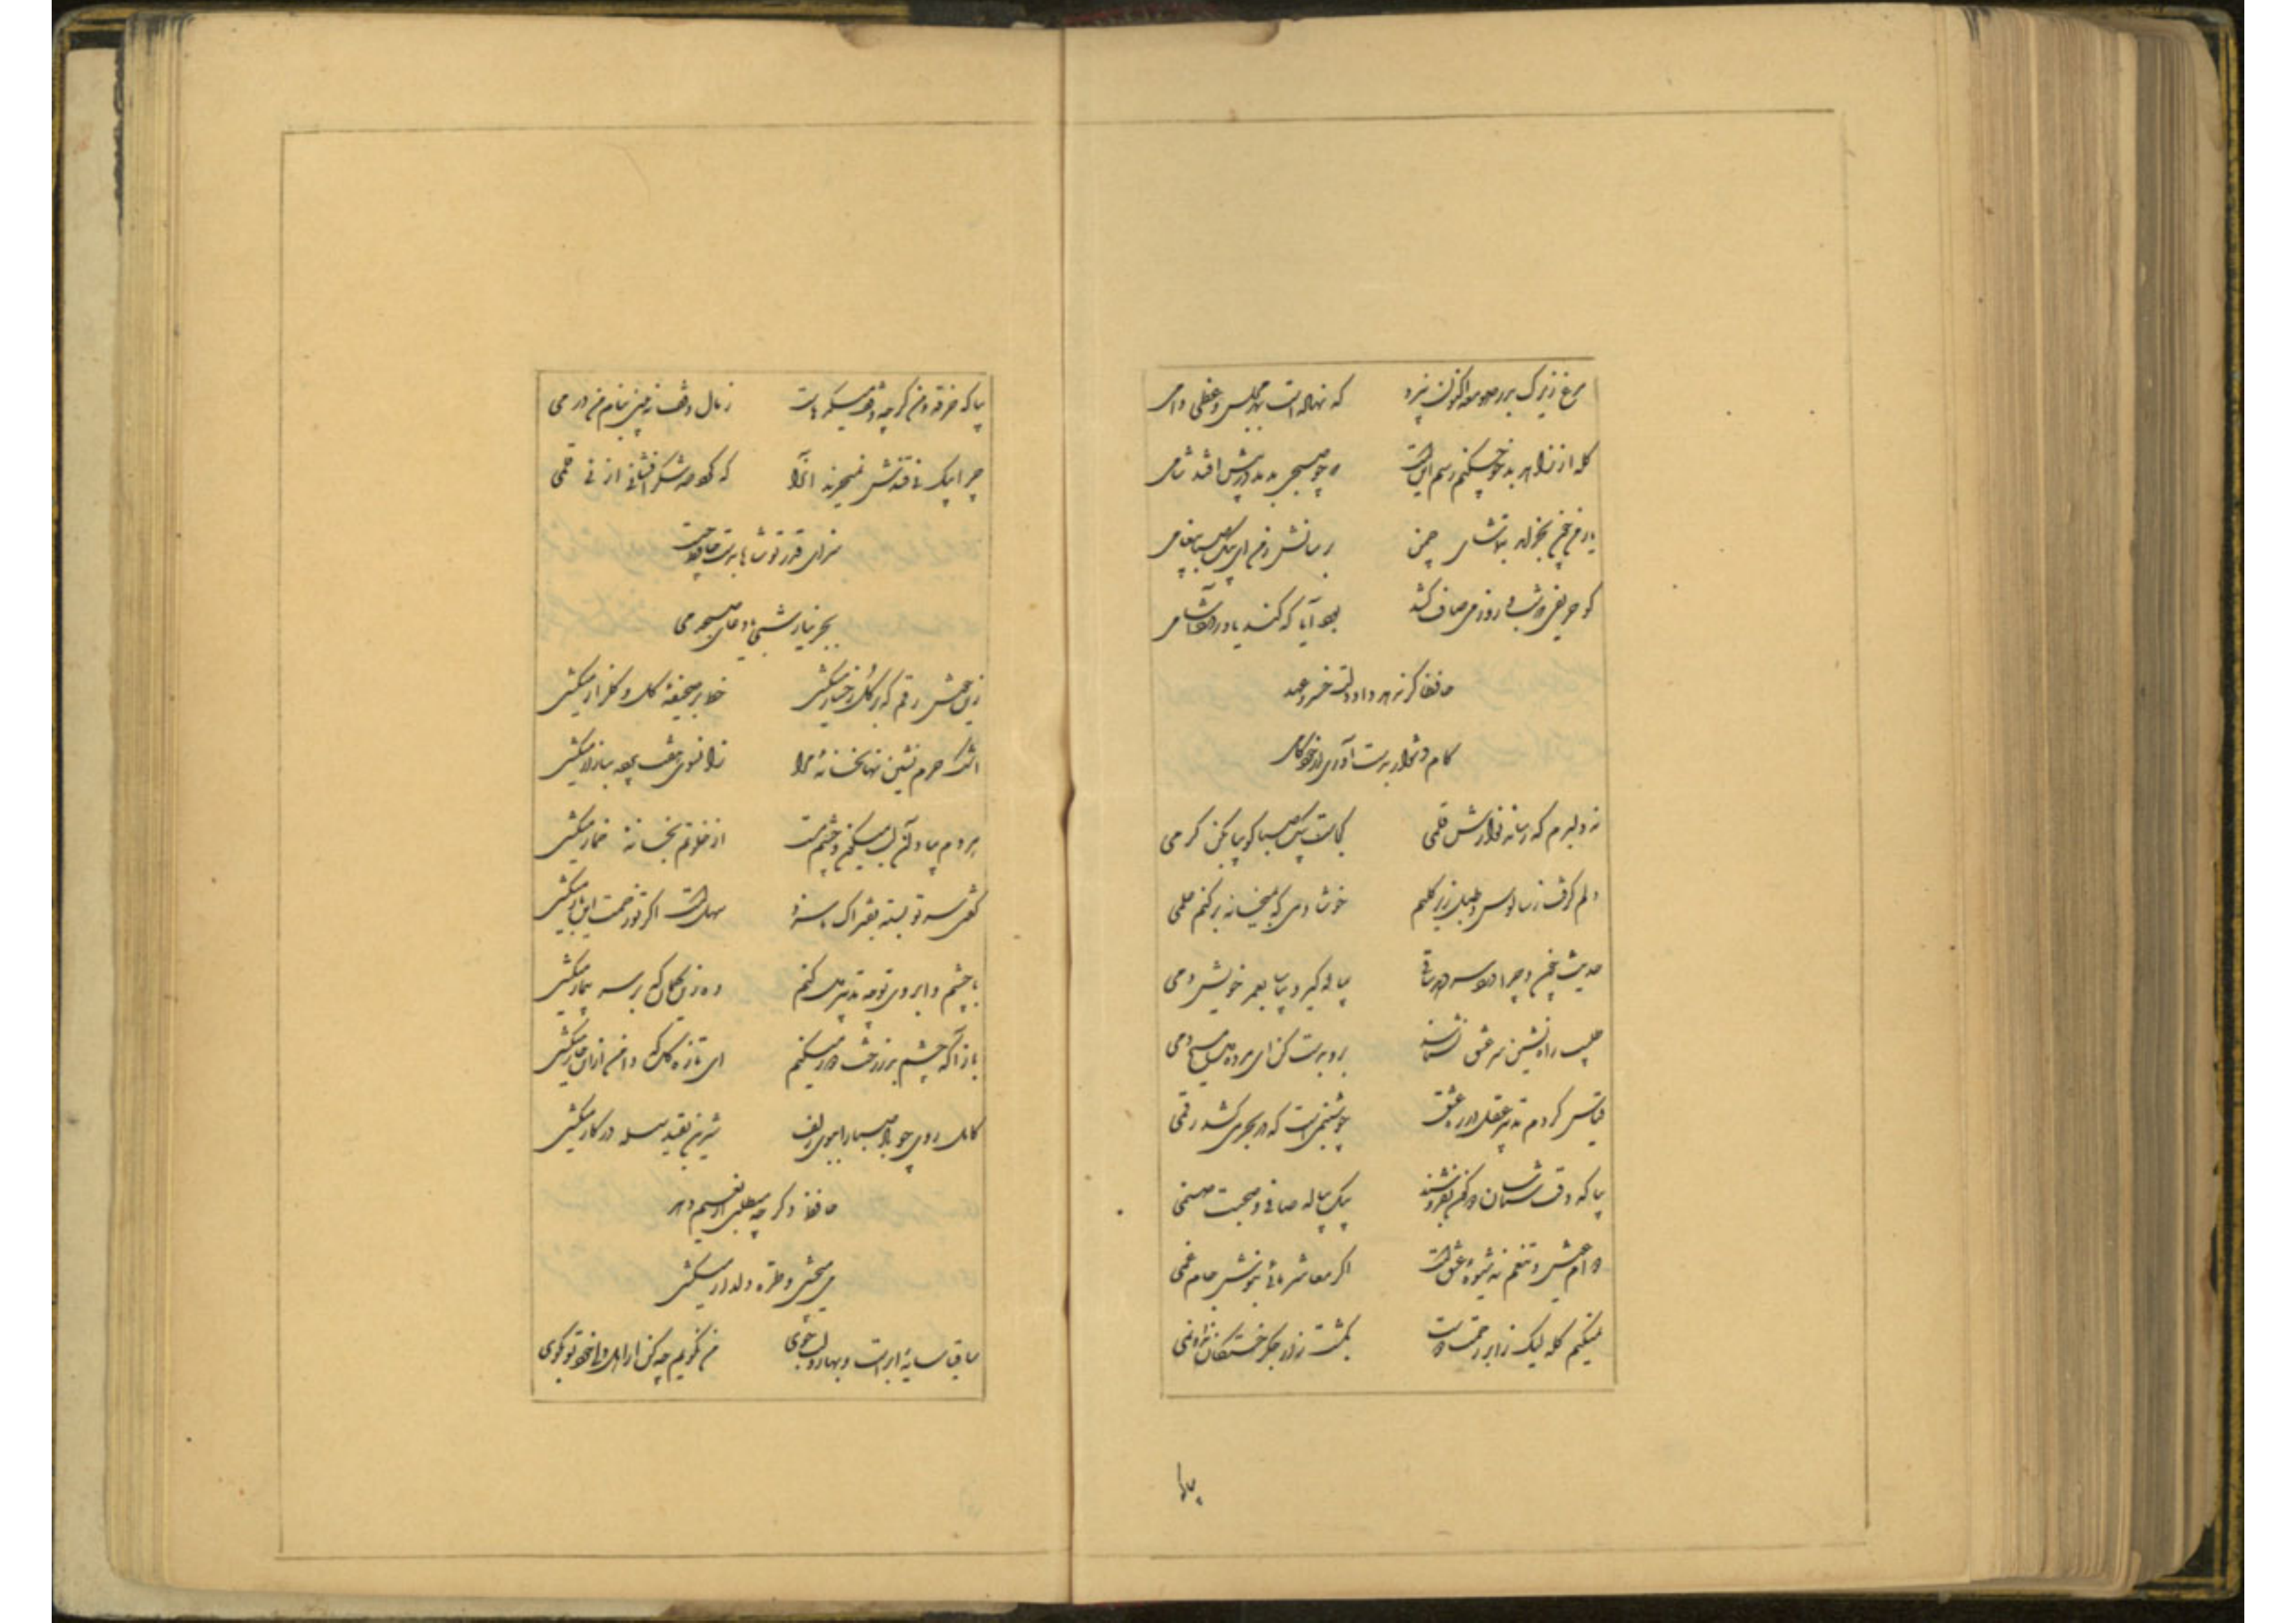 مرغ زیرک بدر صومعه اکنون نپرد که نهاد است بهر مجلس وعظی دامی
گله از زاهد بدخو چکنم رسم اینست که چو صبحی بدمد در پیش افتد شامی
یار من چون بخرامد بتماشای چمن برسانش ز من ای پیک صبا پیغامی
کو حریفی که شب و روز می صاف کشد بود آیا که کند یاد ز دردآشامی
حافظا گر ندهد داد دلت خسرو عهد
کام دشوار بدست آوری از خودکامی
که دلبرم که رساند نوازش قلمی کجاست پیک صبا گو بیا بکن کرمی
دلم گرفت ز سالوس و طبل زیر گلیم خوشا دمی که بمیخانه برکنم علمی
حدیث چون و چرا درد سر دهد ساقی پیاله گیر و بیاسا بعمر خویش دمی
طبیب راه نشین سر عشق نشناسد برو بدست کن ای مرده دل مسیح دمی
قیاس کردم تدبیر عقل در ره عشق چو شبنمی است که در بحر میکشد رقمی
بیا که وقت شناسان دو کون بفروشند بیک پیاله صافی و صحبت صنمی
دوام عیش و تنعم نه شیوه عشقست اگر معاشر مائی بنوش جام غمی
نمیکنم گله لیک از ابر رحمت دوست بکشت زار جگر خستگان نداد نمی
بیا
بیا که خرقه من گرچه وقف میکده هاست ز مال وقف نه بینی بنام من درمی
چرا بیک نی قندش نمیخرند آنرا که کرد صد شکر افشانی از نی قلمی
سزای قدر تو شاها بدست حافظ نیست
بجز نیاز شبی و دعای صبحدمی
زین خوش رقم که بر گل رخسار میکشی خط بر صحیفه گل و گلزار میکشی
اشک حرم نشین نهانخانه مرا زانسوی هفت پرده ببازار میکشی
هر دم بیاد آن لب میگون و چشم مست از خلوتم بخانه خمار میکشی
گفتی سر تو بسته فتراک ما سزد سهلست اگر تو زحمت این بار میکشی
با چشم و ابروی تو چه تدبیر دل کنم وه زین کمان که بر سر بیمار میکشی
باز آ که چشم بد ز رخت دور میکنم ای تازه گل که دامن ازین خار میکشی
کاهل روی چو باد صبا را ببوی زلف شیرین بقید سلسله در کار میکشی
حافظ دگر چه میطلبی از نعیم دهر
می میچشی و طره دلدار میکشی
ساقیا سایه ابر است و بهار و لب جوی من نگویم چه کن ار اهل دلی خود تو بگوی